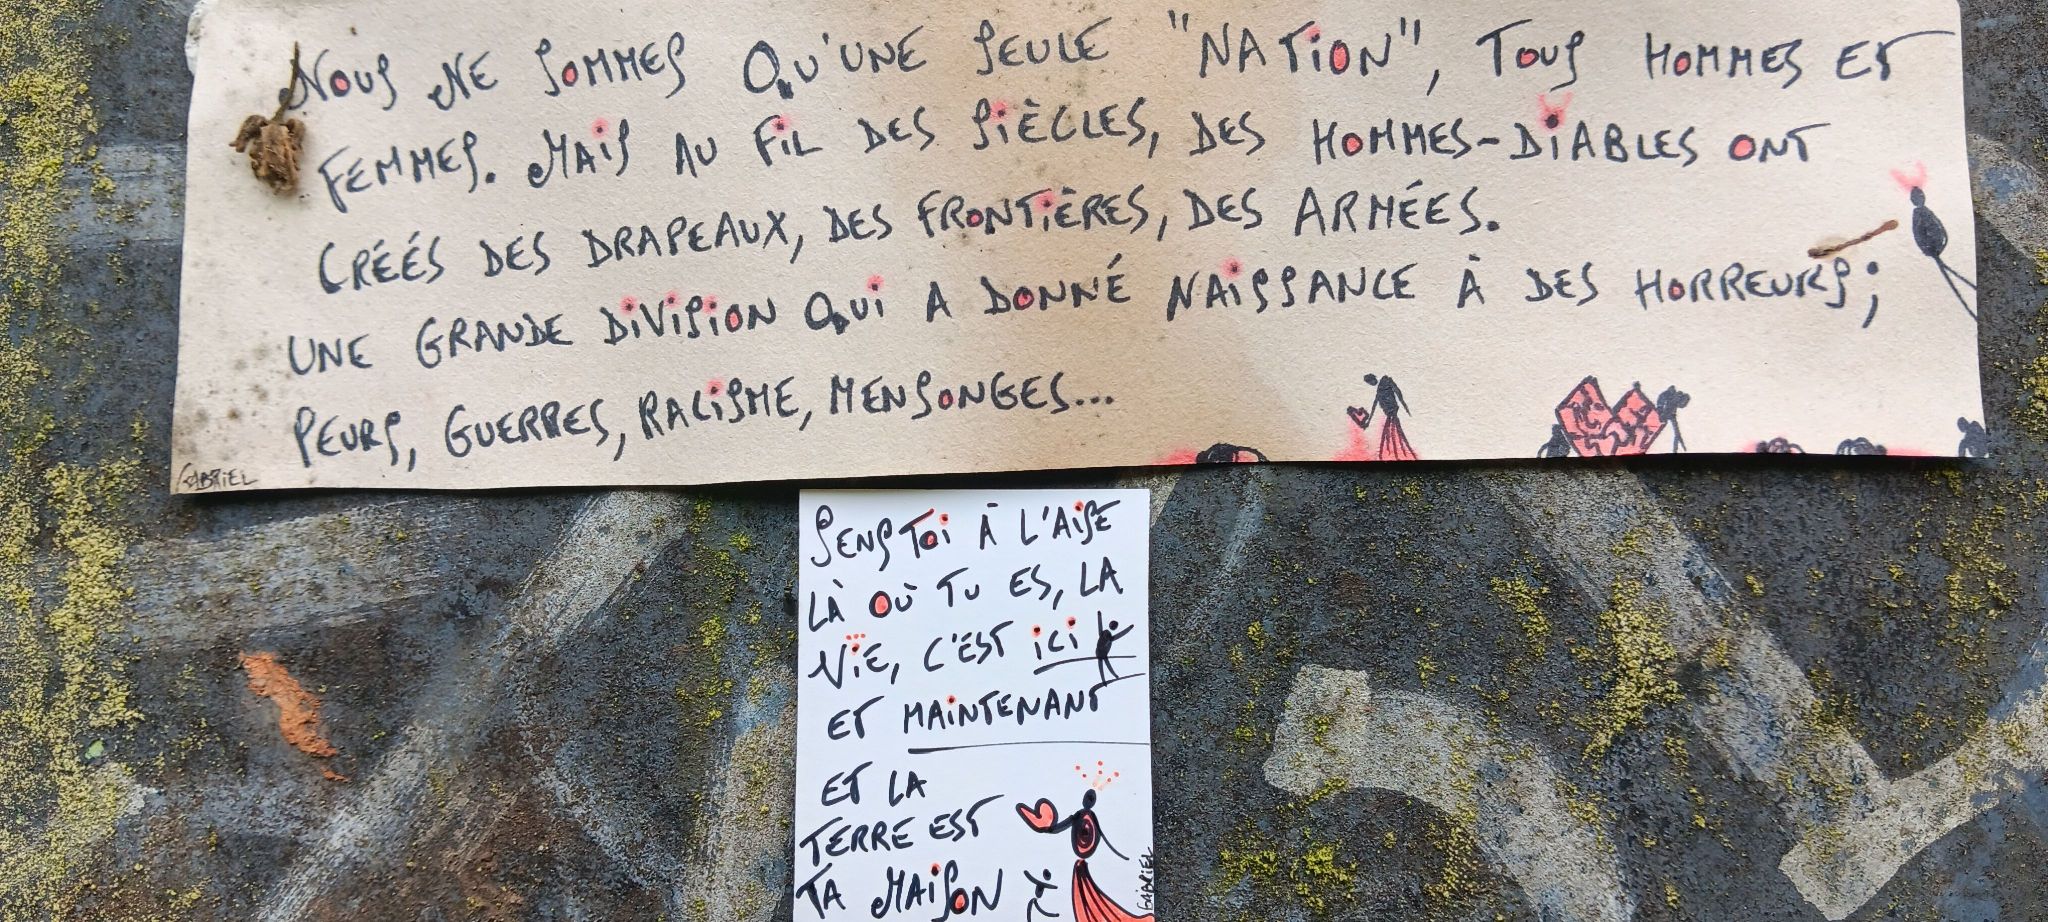 NOUS NE SOMMES QU'UNE SEULE "NATION", TOUS HOMMES ET
FEMMES. MAIS AU FIL DES SIÈCLES, DES HOMMES-DIABLES ONT
CRÉÉS DES DRAPEAUX, DES FRONTIÈRES, DES ARMÉES.
UNE GRANDE DIVISION QUI A DONNÉ NAISSANCE À DES HORREURS;
PEURS, GUERRES, RACISME, MENSONGES...
GABRIEL
SENS TOI À L'AISE
LÀ OÙ TU ES, LA
VIE, C'EST ICI
ET MAINTENANT
ET LA
TERRE EST
TA MAISON
GABRIEL